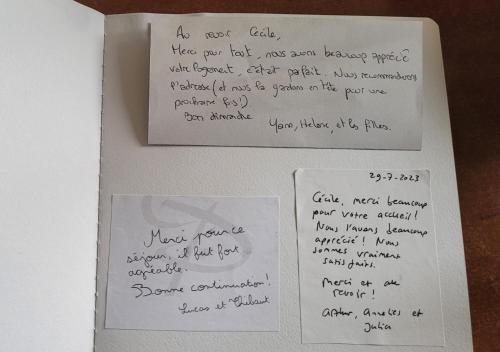 Au revoir Cécile,
Merci pour tout, nous avons beaucoup apprécié
votre logement, c'était parfait. Nous recommanderons
l'adresse (et nous la gardons en tête pour une
prochaine fois!)
Bon dimanche
Yann, Helene, et les filles.
Merci pour ce
séjour, il fut fort
agréable.
Bonne continuation!
Lucas et Thibaut
29-7-2023
Cécile, merci beaucoup
pour votre accueil!
Nous l'avons beaucoup
apprécié! Nous
sommes vraiment
satisfaits.
Merci et au
revoir!
Arthur, Annelies et
Julia